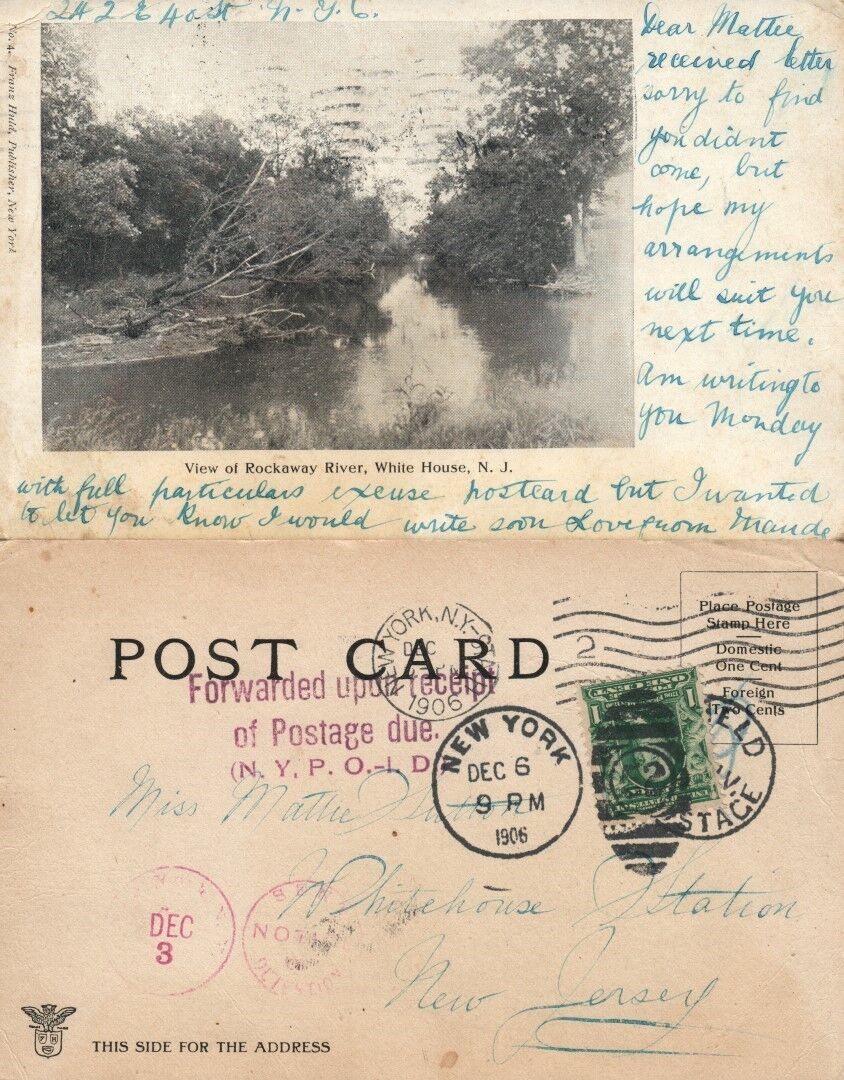 242 E 40 St N.Y.C.
No. 4. Franz Huld, Publisher, New York
Dear Mattie
received letter
sorry to find
you didnt
come, but
hope my
arrangements
will suit you
next time.
am writing to
you Monday
View of Rockaway River, White House, N. J.
with full particulars excuse postcard but I wanted
to let you know I would write soon Love from Maude
POST CARD
Place Postage
Stamp Here
Domestic
One Cent
Foreign
Two Cents
NEW YORK, N.Y.
DEC
1906
2
Forwarded upon receipt
of Postage due.
(N. Y. P. O.-I. D.)
NEW YORK
DEC 6
9 PM
1906
HELD
POSTAGE
2
Miss Mattie Sutton
Whitehouse Station
New Jersey
DEC
3
THIS SIDE FOR THE ADDRESS